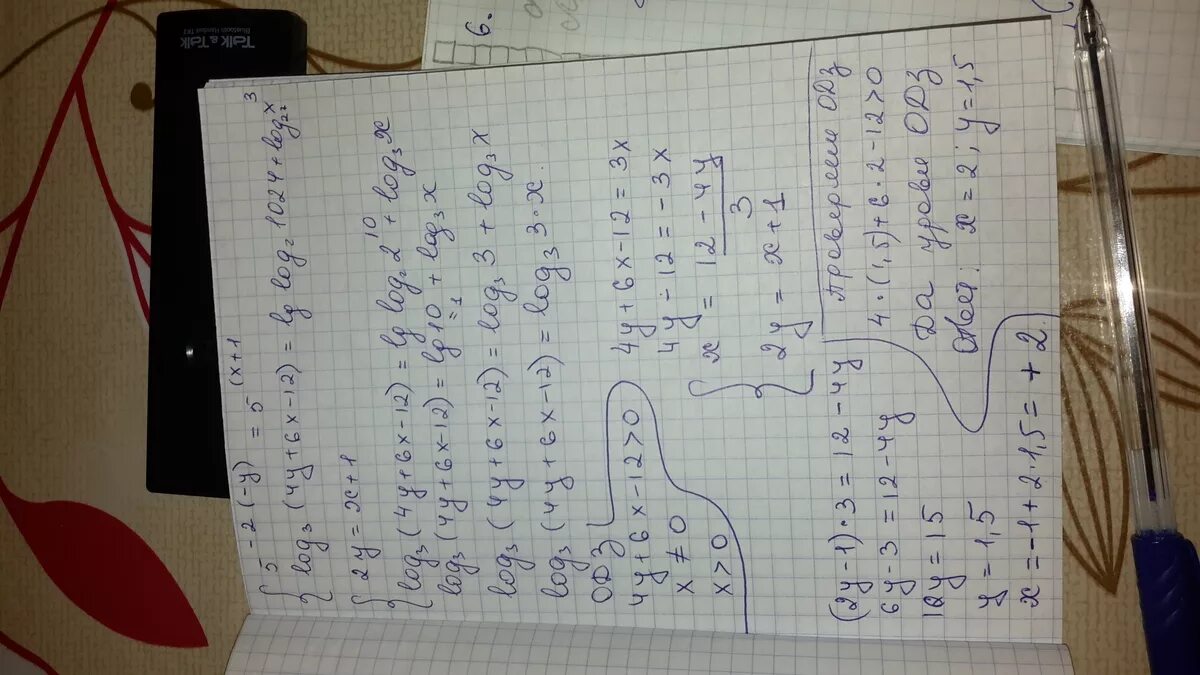 { 5^(-2(-y)) = 5^(x+1)
log₃(4y+6x-12) = lg log₂ 1024 + log₂₇ x³
{ 2y = x+1
log₃(4y+6x-12) = lg log₂ 2¹⁰ + log₃ x
log₃(4y+6x-12) = lg10 + log₃ x
=1
log₃(4y+6x-12) = log₃ 3 + log₃ x
log₃(4y+6x-12) = log₃ 3·x.
ОДЗ
4y+6x-12>0
x ≠ 0
x>0
4y+6x-12=3x
4y-12=-3x
{ x = (12-4y)/3
2y = x+1
(2y-1)·3=12-4y
6y-3=12-4y
10y=15
y=1,5
x=-1+2·1,5=+2
проверяем ОДЗ
4·(1,5)+6·2-12>0
Да уровен ОДЗ
Ответ: x=2; y=1,5
6.
Talk & Talk
Bluetooth Handset TK1